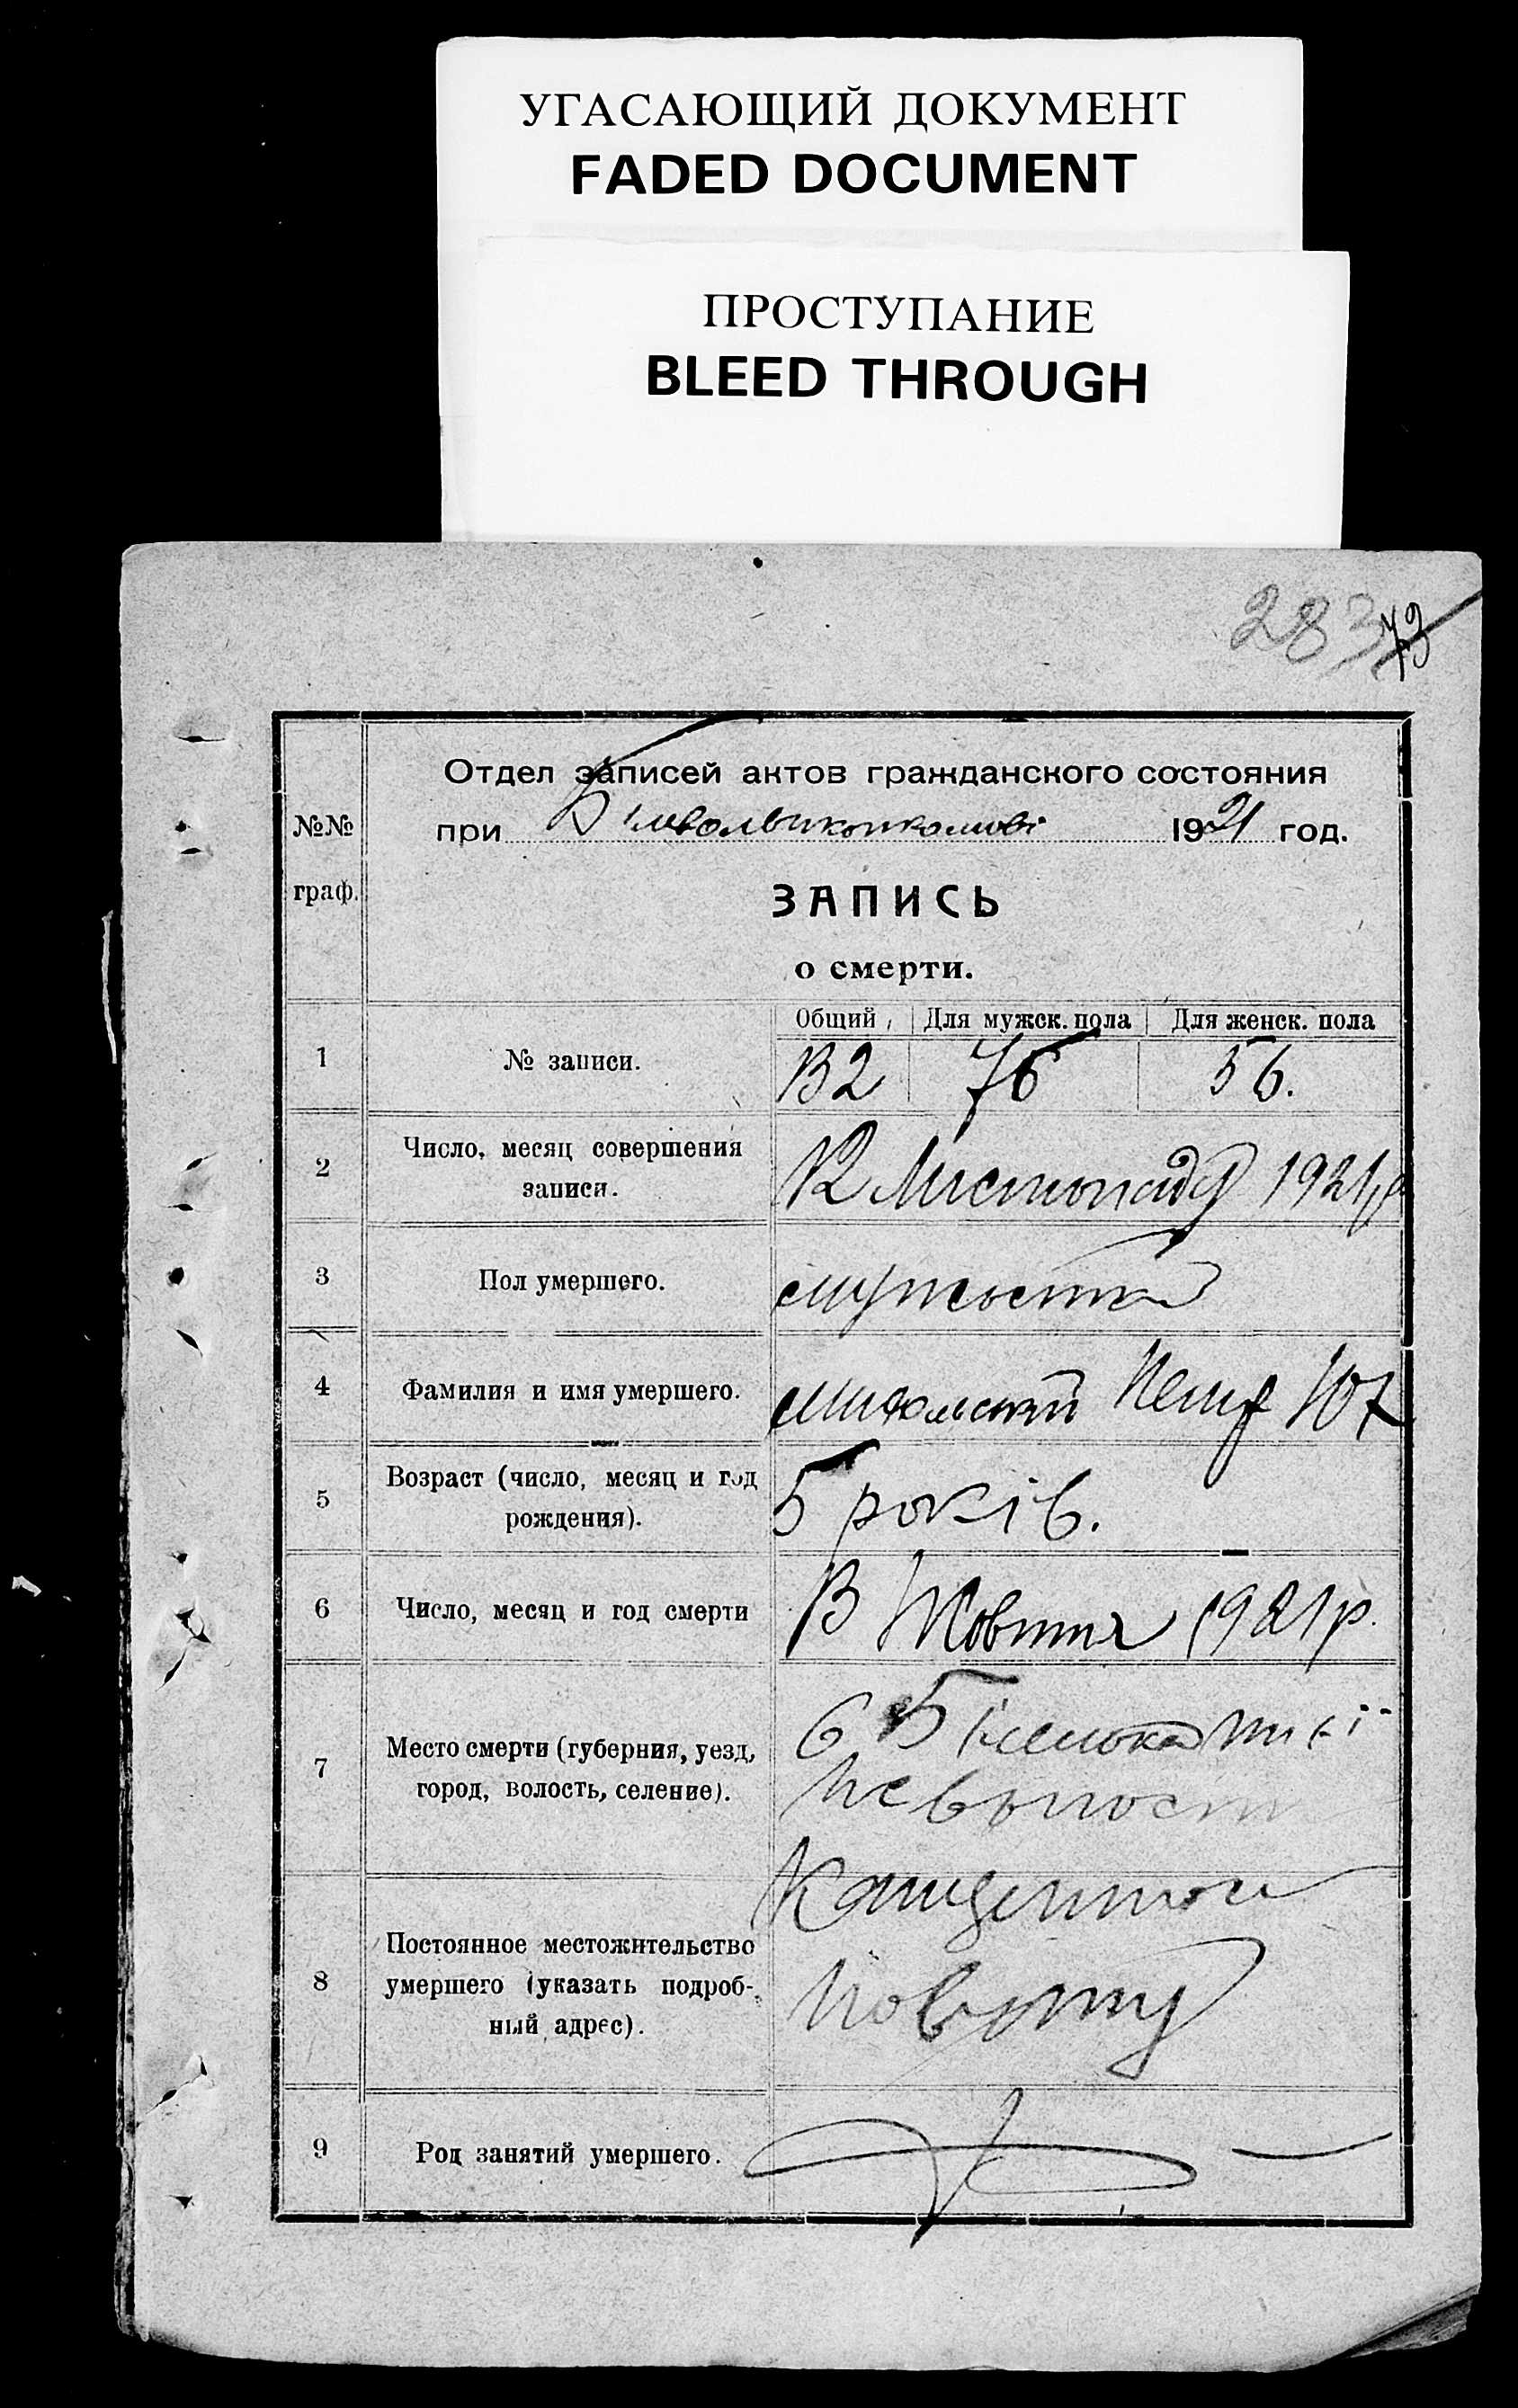 УГАСАЮЩИЙ ДОКУМЕНТ
FADED DOCUMENT
ПРОСТУПАНИЕ
BLEED THROUGH
283 73
№№ граф.
Отдел записей актов гражданского состояния
при 1921 год.
ЗАПИСЬ
о смерти.
Общий Для мужск. пола Для женск. пола
1 № записи. 132 76 56.
2 Число, месяц совершения
записи. 12 Листопада 1921р
3 Пол умершего.
4 Фамилия и имя умершего.
5 Возраст (число, месяц и год
рождения). 5 років.
6 Число, месяц и год смерти 13 Жовтня 1921р.
7 Место смерти (губерния, уезд,
город, волость, селение).
8 Постоянное местожительство
умершего (указать подроб-
ный адрес). повіту
9 Род занятий умершего.